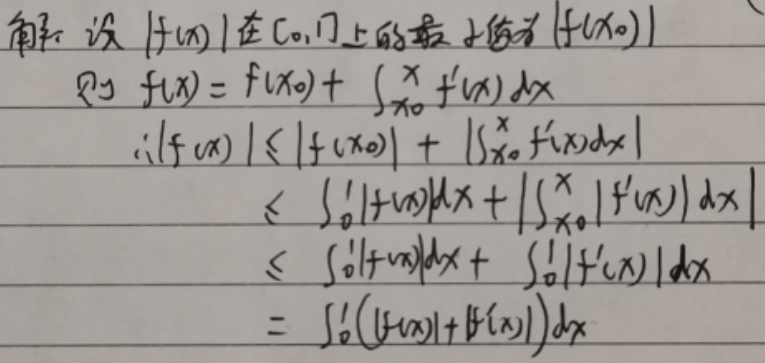 解: 设 |f(x)| 在 [0,1] 上的最小值为 |f(x₀)|
则 f(x) = f(x₀) + ∫_{x₀}^{x} f'(x) dx
∴ |f(x)| ≤ |f(x₀)| + |∫_{x₀}^{x} f'(x) dx|
≤ ∫₀¹ |f(x)| dx + |∫_{x₀}^{x} |f'(x)| dx|
≤ ∫₀¹ |f(x)| dx + ∫₀¹ |f'(x)| dx
= ∫₀¹ (|f(x)| + |f'(x)|) dx